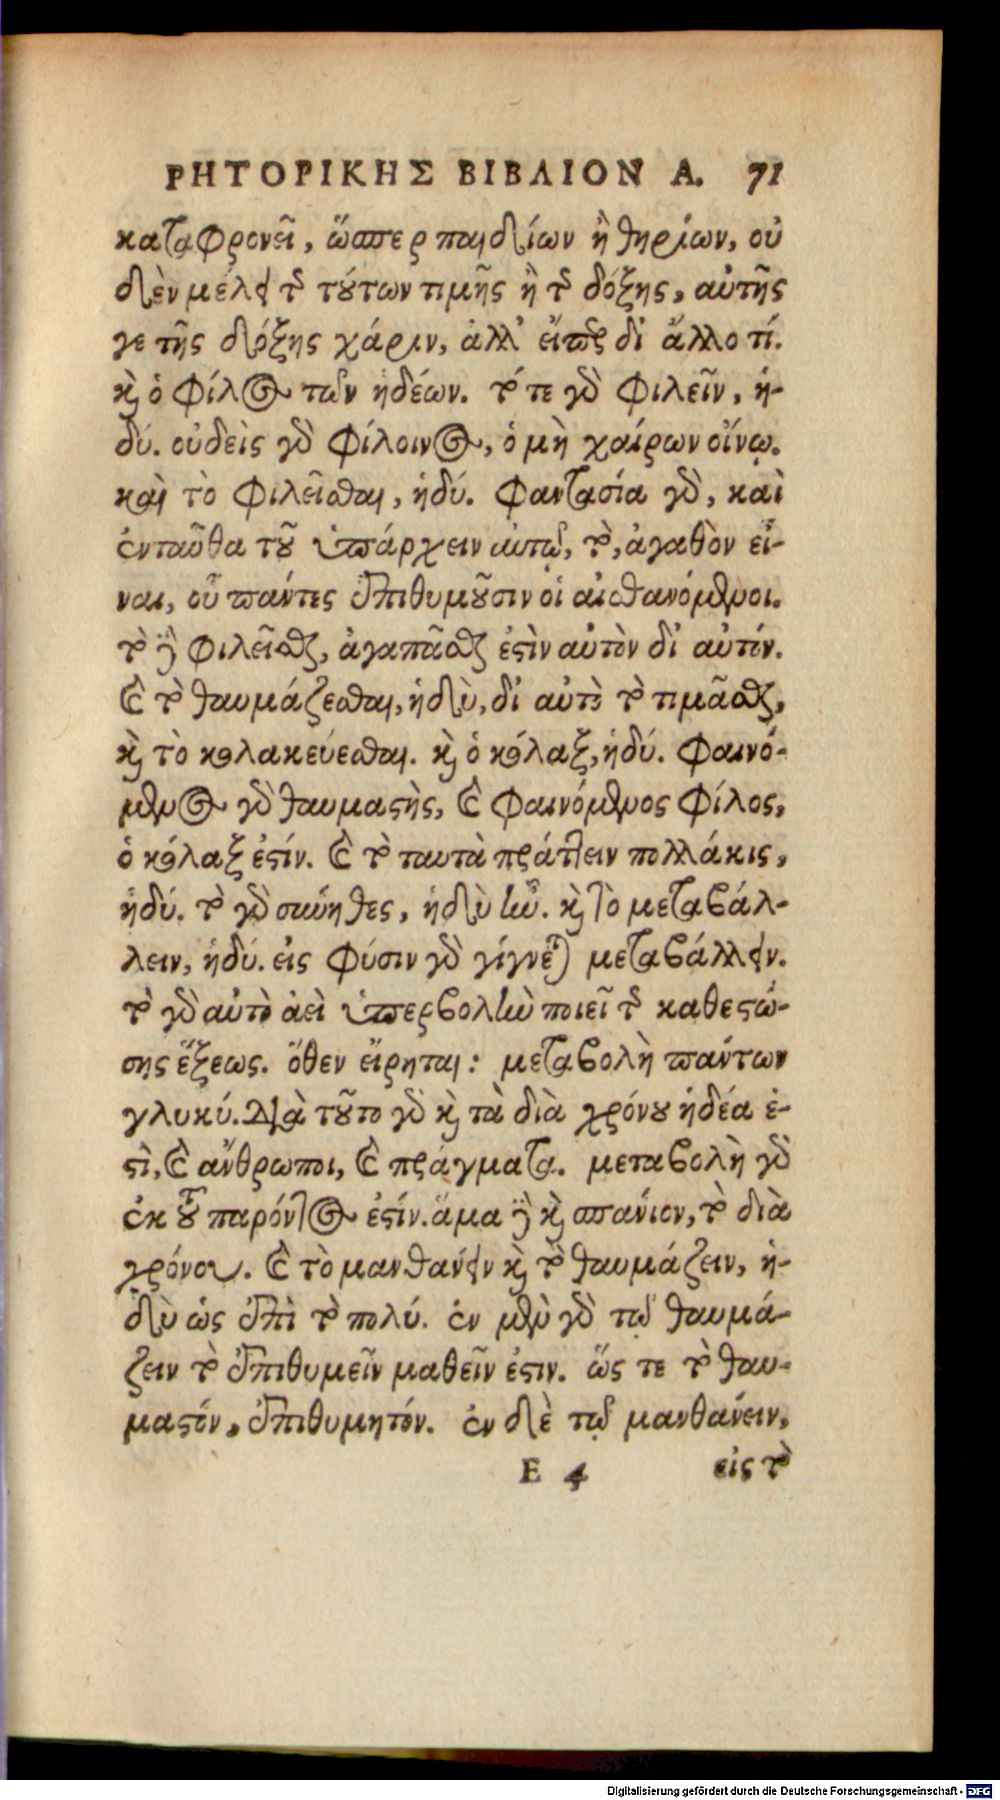 ΡΗΤΟΡΙΚΗΣ ΒΙΒΛΙΟΝ Α. 71
καταφρονεῖ, ὥσπερ παιδίων ἢ θηρίων, οὐ
δὲν μέλει τῆς τούτων τιμῆς ἢ τῆς δόξης, αὐτῆς
γε τῆς δόξης χάριν, ἀλλ' εἴπερ δι' ἄλλο τί.
καὶ ὁ φίλος τῶν ἡδέων. τό τε γὰρ φιλεῖν, ἡ-
δύ. οὐδεὶς γὰρ φίλοινος, ὁ μὴ χαίρων οἴνῳ.
καὶ τὸ φιλεῖσθαι, ἡδύ. φαντασία γὰρ, καὶ
ἐνταῦθα τοῦ ὑπάρχειν αὐτῷ, τὸ, ἀγαθὸν εἶ-
ναι, οὗ πάντες ἐπιθυμοῦσιν οἱ αἰσθανόμενοι.
τὸ δὲ φιλεῖσθαι, ἀγαπᾶσθαι ἐστὶν αὐτὸν δι' αὐτόν.
καὶ τὸ θαυμάζεσθαι, ἡδὺ, δι' αὐτὸ τὸ τιμᾶσθαι,
καὶ τὸ κολακεύεσθαι. καὶ ὁ κόλαξ, ἡδύ. φαινό-
μενος γὰρ θαυμαστὴς, καὶ φαινόμενος φίλος,
ὁ κόλαξ ἐστίν. καὶ τὸ ταυτὰ πράττειν πολλάκις,
ἡδύ. τὸ γὰρ σύνηθες, ἡδὺ ἦν. καὶ τὸ μεταβάλ-
λειν, ἡδύ. εἰς φύσιν γὰρ γίγνεται μεταβάλλειν.
τὸ γὰρ αὐτὸ ἀεὶ ὑπερβολὴν ποιεῖ τῆς καθεστώ-
σης ἕξεως. ὅθεν εἴρηται: μεταβολὴ πάντων
γλυκύ. Διὰ τοῦτο γὰρ καὶ τὰ διὰ χρόνου ἡδέα ἐ-
στὶ, καὶ ἄνθρωποι, καὶ πράγματα. μεταβολὴ γὰρ
ἐκ τοῦ παρόντος ἐστίν. ἅμα δὲ καὶ σπάνιον, τὸ διὰ
χρόνου. καὶ τὸ μανθάνειν καὶ τὸ θαυμάζειν, ἡ-
δὺ ὡς ἐπὶ τὸ πολύ. ἐν μὲν γὰρ τῷ θαυμά-
ζειν τὸ ἐπιθυμεῖν μαθεῖν ἐστιν. ὥς τε τὸ θαυ-
μαστόν, ἐπιθυμητόν. ἐν δὲ τῷ μανθάνειν,
E 4 εἰς τὸ
Digitalisierung gefördert durch die Deutsche Forschungsgemeinschaft - DFG